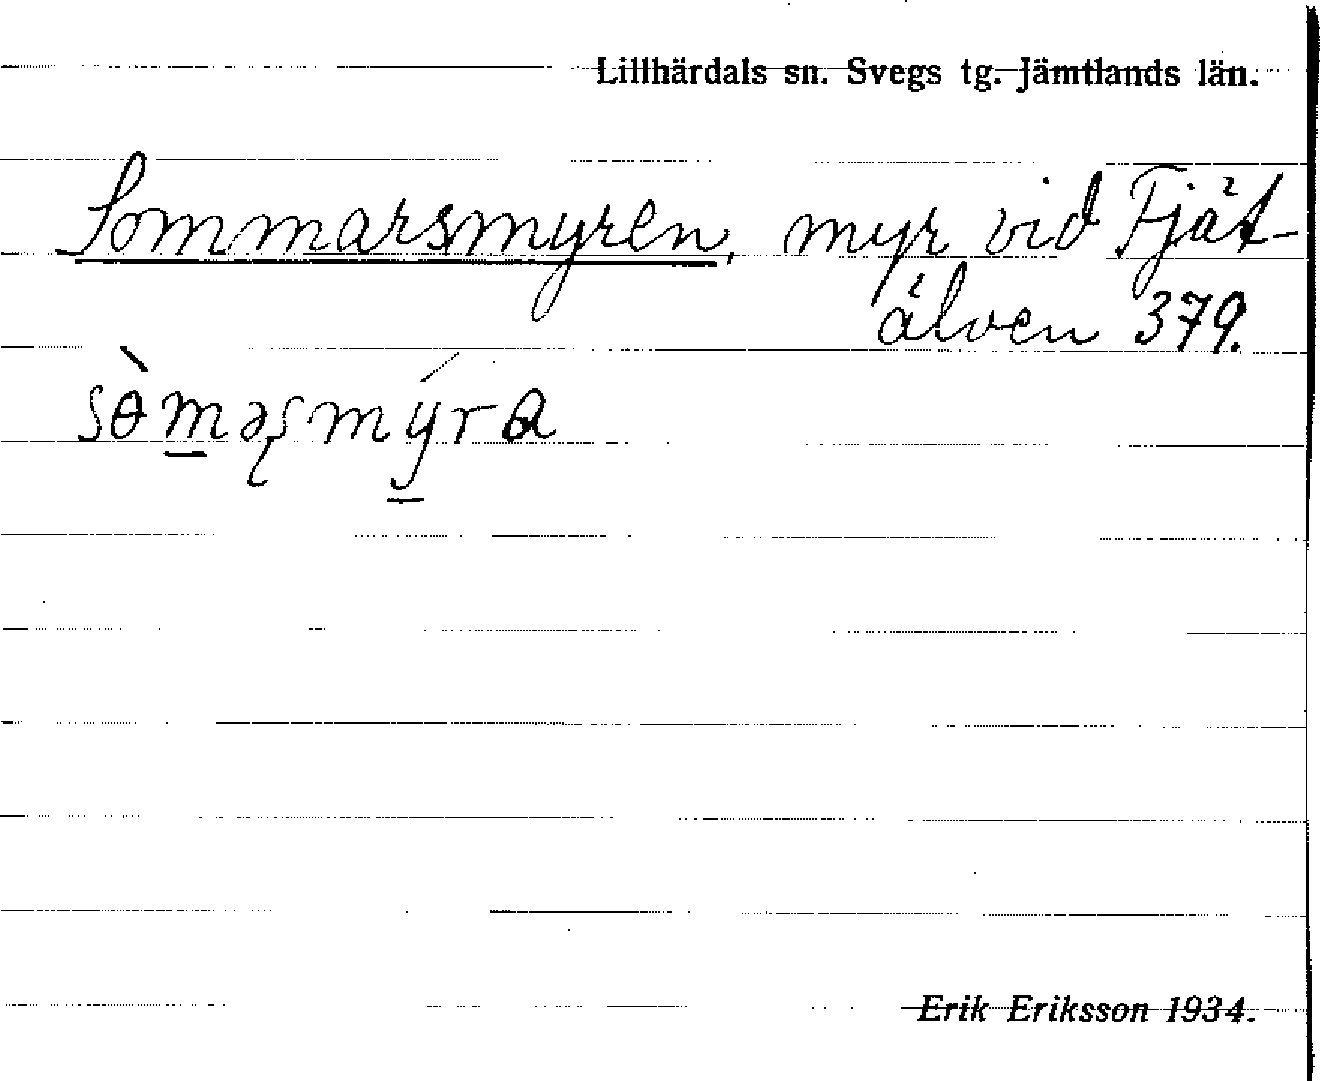 Lillhärdals sn. Svegs tg. Jämtlands län.
Sommarsmyren, myr vid Fjät-
älven 379.
sɵ̀m̲əʂmý̲ra
Erik Eriksson 1934.